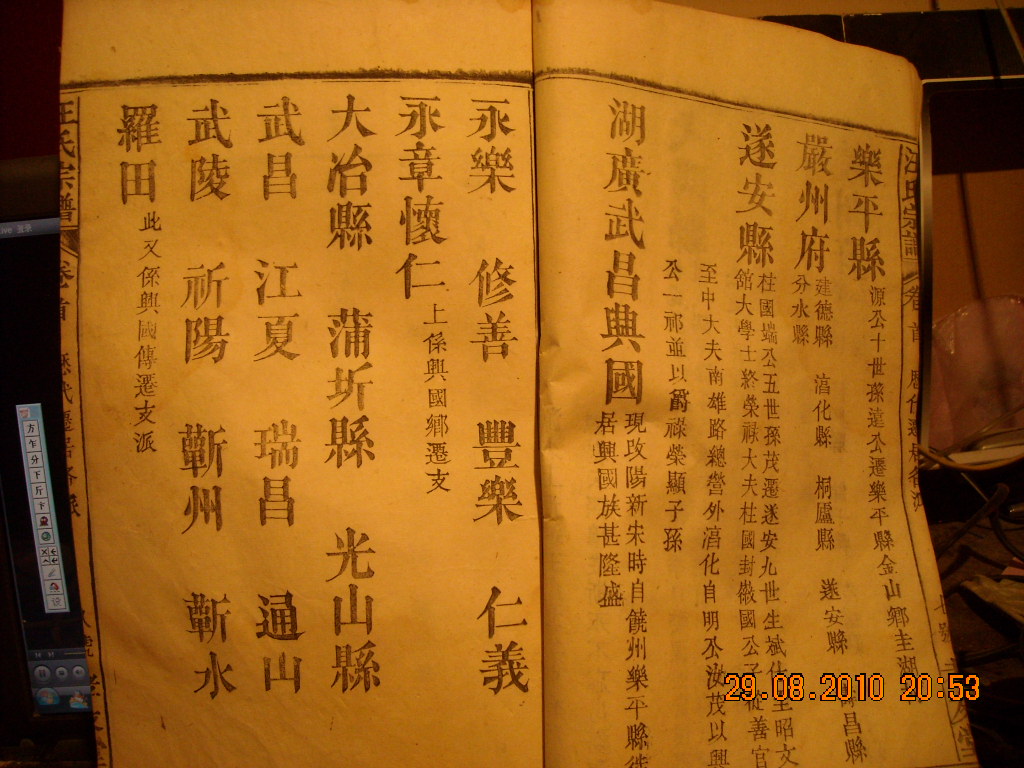 汪氏宗譜 卷首
樂平縣 源公十世孫達公遷樂平縣金山鄉圭湖
嚴州府 建德縣 淳化縣 桐廬縣 遂安縣 昌縣
分水縣
遂安縣 柱國端公五世孫茂遷遂安九世生斌仕至昭文
館大學士終榮祿大夫柱國封徽國公子從善官
至中大夫南雄路總管外淳化自明公汝茂以興
公一祁並以爵祿榮顯子孫
湖廣武昌興國 現改陽新宋時自饒州樂平縣徙
居興國族甚隆盛
永樂 修善 豐樂 仁義
永章懷仁 上係興國鄉遷支
大冶縣 蒲圻縣 光山縣
武昌 江夏 瑞昌 通山
武陵 祈陽 蘄州 蘄水
羅田 此又係興國傳遷支派
汪氏宗譜 卷首 歷代遷居各派
方
乍
分
下
斤
卞
29.08.2010 20:53